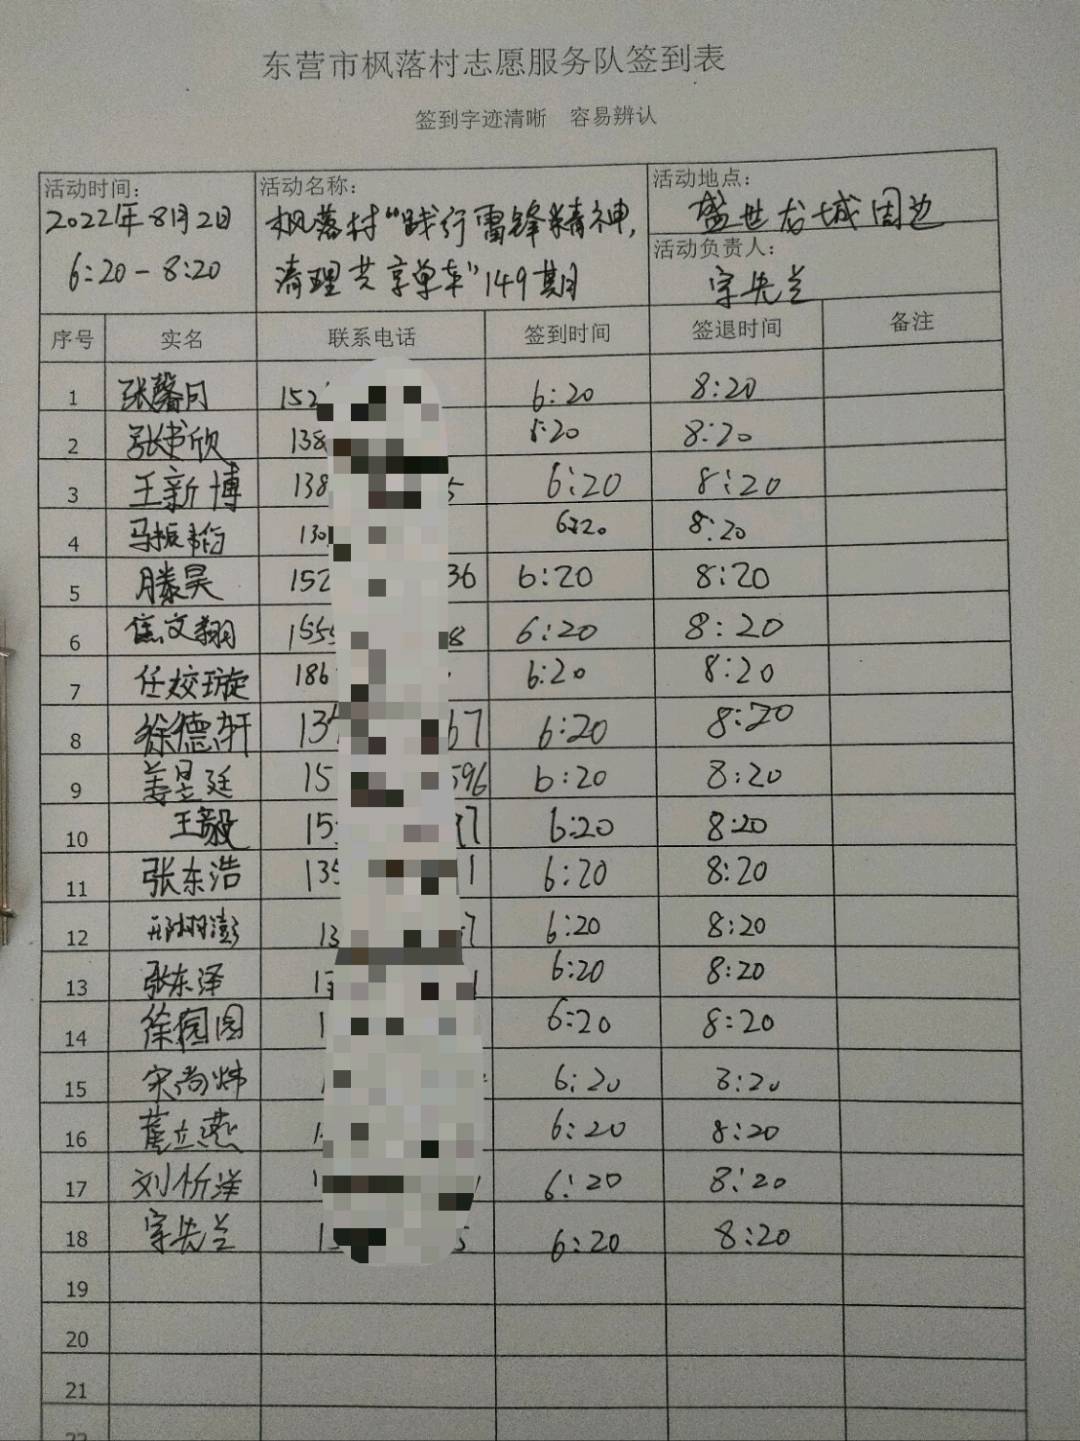 东营市枫落村志愿服务队签到表
签到字迹清晰 容易辨认
活动时间: 2022年8月2日
6:20-8:20
活动名称: 枫落村“践行雷锋精神,
清理共享单车”149期
活动地点: 盛世龙城周边
活动负责人:
序号 实名 联系电话 签到时间 签退时间 备注
1 张馨月 152 6:20 8:20
2 张书欣 138 6:20 8:20
3 王新博 138 5 6:20 8:20
4 马振韬 130 6:20 8:20
5 滕昊 152 36 6:20 8:20
6 焦文翔 155 8 6:20 8:20
7 任姣璇 186 6:20 8:20
8 徐德轩 13 67 6:20 8:20
9 姜昱廷 15 596 6:20 8:20
10 王毅 15 97 6:20 8:20
11 张东浩 135 1 6:20 8:20
12 邢树澎 13 7 6:20 8:20
13 张东泽 13 1 6:20 8:20
14 徐圆圆 1 6:20 8:20
15 宋尚炜 6:20 8:20
16 立燕 1 6:20 8:20
17 刘忻泽 1 6:20 8:20
18 13 5 6:20 8:20
19
20
21
22